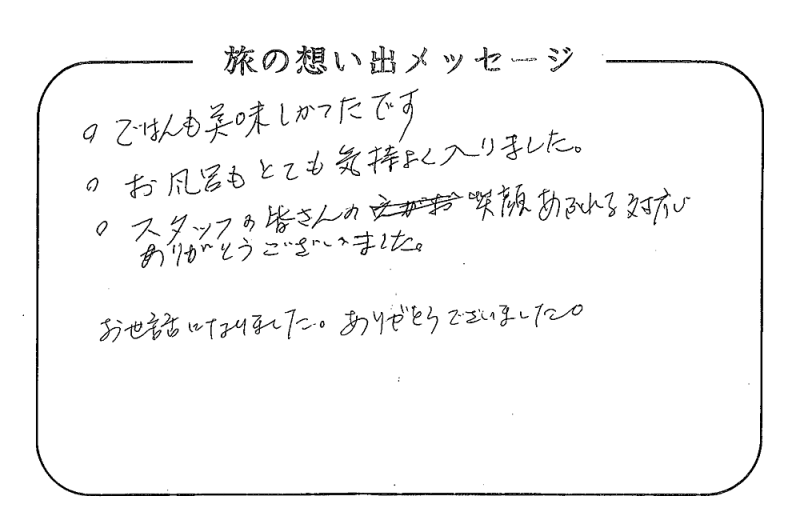 旅の想い出メッセージ
○ ごはんも美味しかったです
○ お風呂もとても気持よく入りました。
○ スタッフの皆さんの 笑顔あふれる対応
ありがとうございました。
お世話になりました。ありがとうございました。